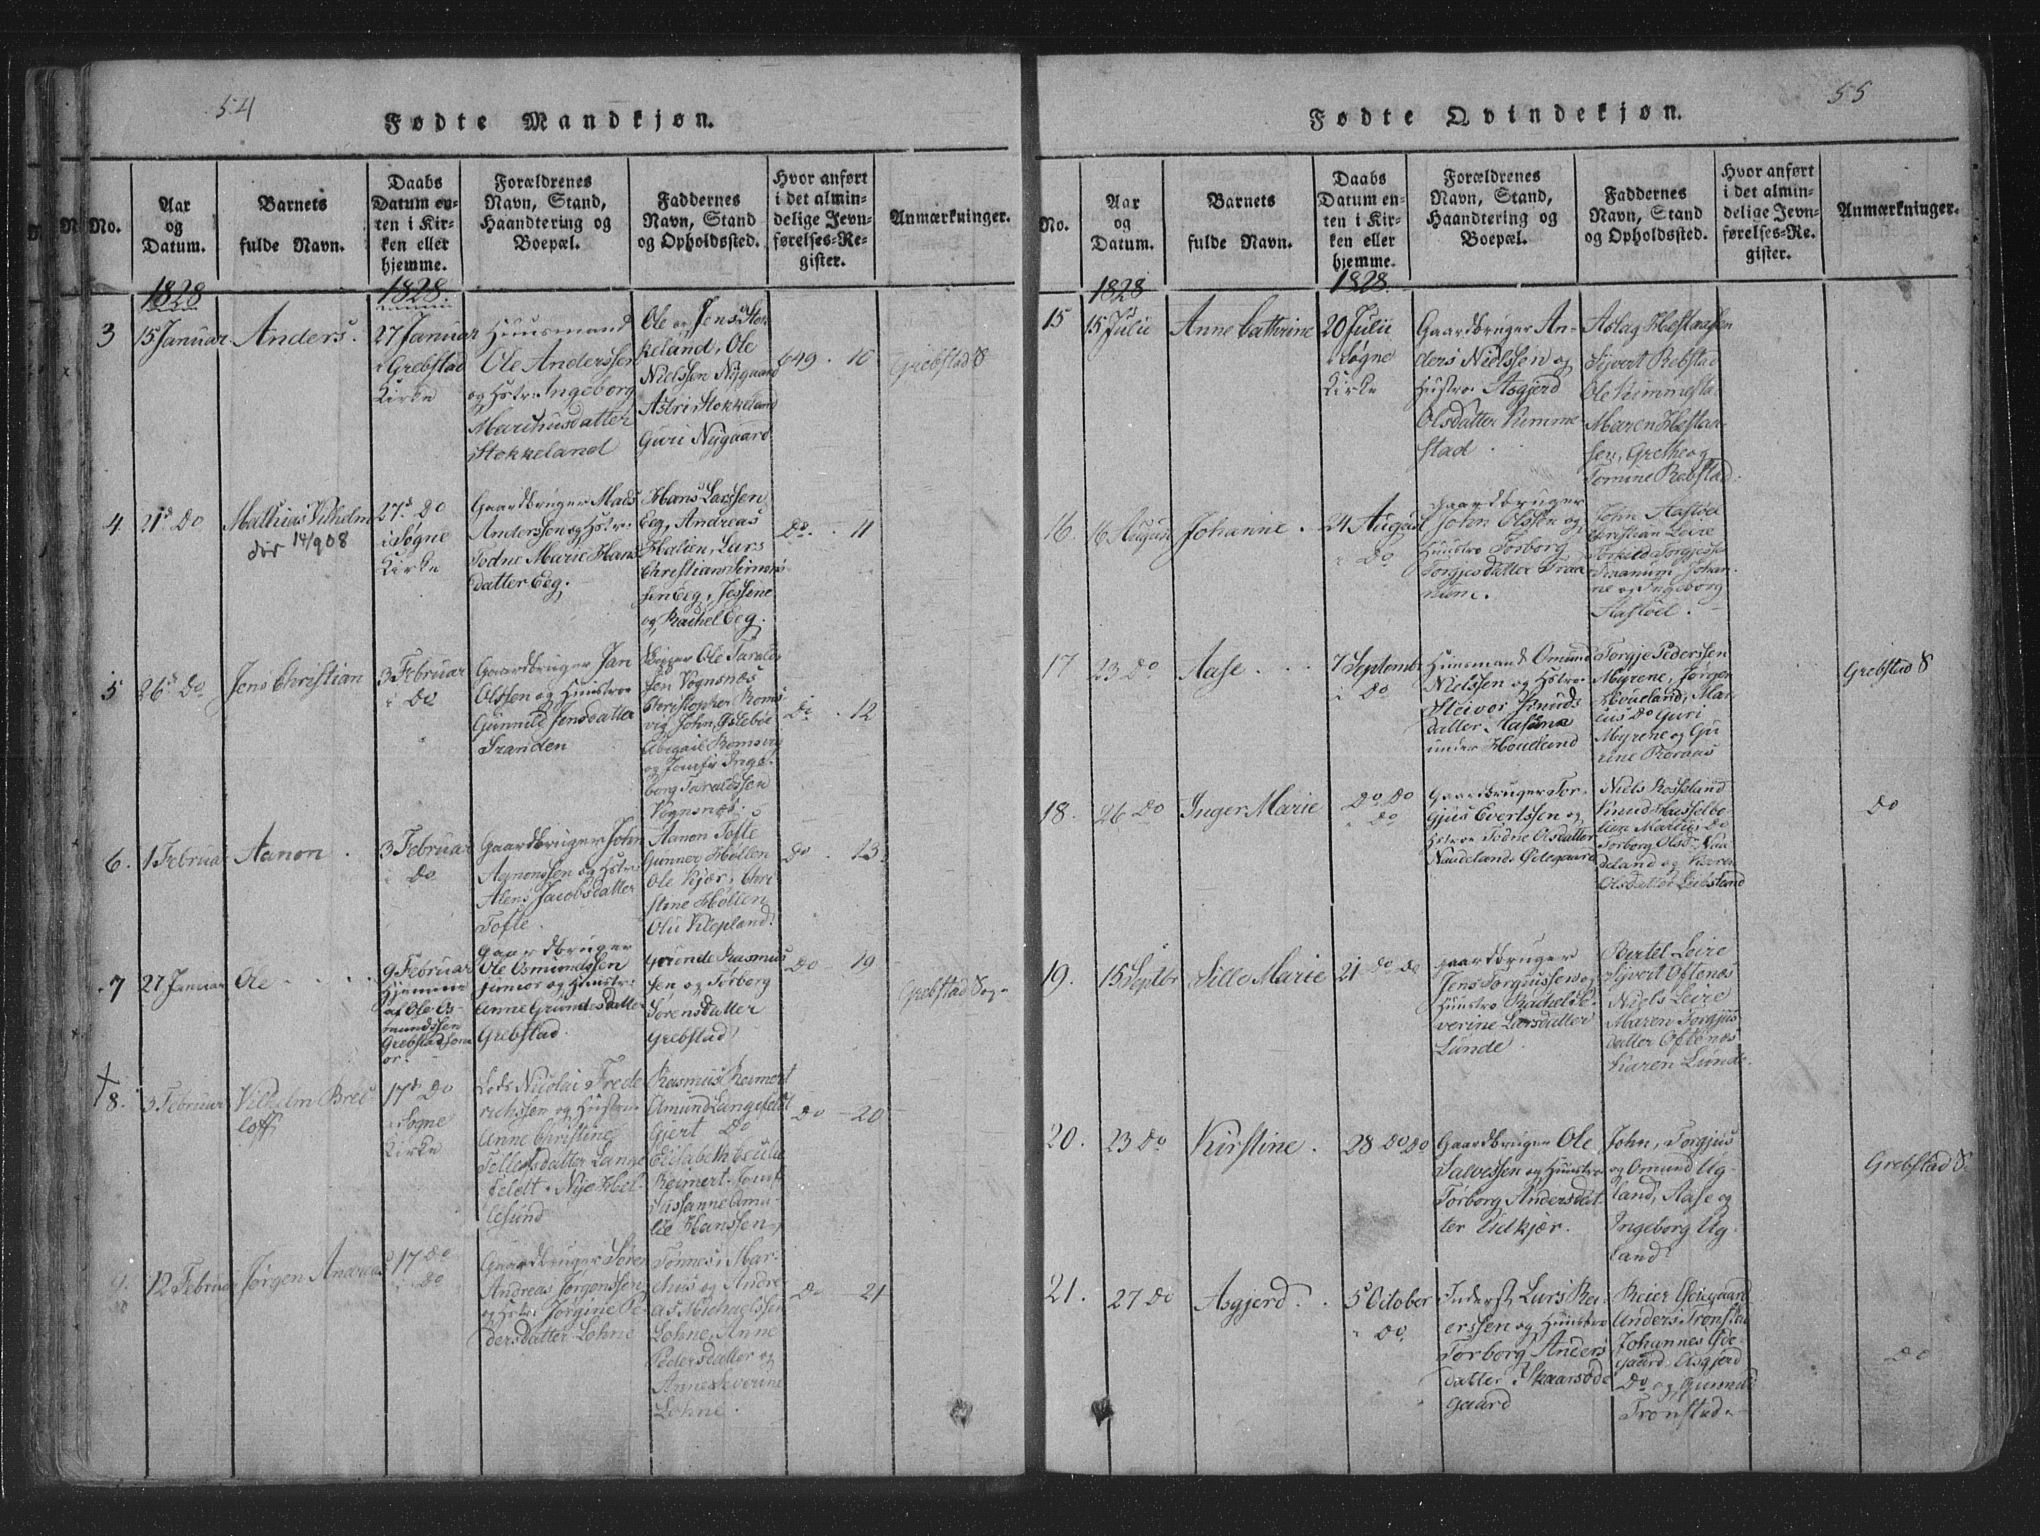 54
Fødte Mandkjøn.
No.
Aar
og
Datum.
Barnets
fulde Navn.
Daabs
Datum en-
ten i Kir-
ken eller
hjemme.
Forældrenes
Navn, Stand,
Haandtering og
Boepæl.
Faddernes
Navn, Stand
og Opholdssted.
Hvor anført
i det almin-
delige Jevn-
førelses-Re-
gister.
Anmærkninger.
1828
1828.
3
15 Januar
Anders.
27 Januar
i Grebstad
Kirke
Huusmand
Ole Anderssen
og Hstr. Ingeborg
Marchusdatter
Stokkeland
Ole og Jens Stok
keland, Ole
Nielssen Nygaard
Astri Stokkeland
Guri Nygaard
649. 10
Grebstad S
4
21d Do
Mathias Vilhelm
dør 14/9 08
27d Do
i Søgne
Kirke
Gaardbruger Mads
Anderssen og Hstr.
Todne Marie Hans
datter Eeg.
Hans Larssen
Eeg, Andreas
Lars
Christian Simons
sen Eeg,
og Rachel Eeg.
Do. 11
5
26d Do
Jens Christian
3 Februar
i Do
Gaardbruger Jan
Olssen og Huustroe
Gunnild Jensdatter
Tranden
Ole Taralds
sen Vognsnæs
Christopher Roms
vig, John
Abigail Romsvig
og Jomfr Inge
borg Taraldssen
Vognsnæs.
Do. 12
6.
1 Februar
Aanon.
3 Februar
i Do
Gaardbruger John
Aanonssen og Hstr.
Alens Jacobsdatter
Tofte.
Aanon Tofte
Gunner Høllen
Ole Kjær, Chri
stine Høllen
Olu Klepland.
Do. 13.
7
27 Januar
Ole
9 Februar
Hjemme
af Ole Os-
mundssen
Grebstad
or.
Gaardbruger
Ole Osmundssen
junior og Huustr.
Anne Grundesdatter
Grebstad.
Grunde Rasmus
sen og Torborg
Sørensdatter
Grebstad
Do 19
Grebstad Sog-
8.
3 Februar
Vilhelm
17d Do
i Sogne
Kirke
Lods Nicolai Frede
richssen og Hustru
Anne Christine
Tellefsdatter Lange
feldt. Nye Hel-
lesund
Rasmus Reimert
Amund Langefeldt
Gjert Do
Elisabeth Cecilie
Reimert. Jomf
Susanne Ama
lie Hanssen.
Do 20
9.
12 Februar
Jørgen Andreas
17 Do
i Do
Gaardbruger Søren
Andreas Jørgenssen
og Hstr. Jørgine Pe
dersdatter Lohne
Tønnes, Mar-
chus og Andre
as Michaelssen
Lohne, Anne
Pedersdatter og
Anne Severine
Lohne.
Do 21
55
Fødte Qvindekjøn.
No.
Aar
og
Datum.
Barnets
fulde Navn.
Daabs
Datum en-
ten i Kir-
ken eller
hjemme.
Forældrenes
Navn, Stand,
Haandtering og
Boepæl.
Faddernes
Navn, Stand
og Opholdssted.
Hvor anført
i det almin-
delige Jevn-
førelses-Re-
gister.
Anmærkninger.
1828
1828.
15
15 Julii
Anne Cathrine
20 Julii
i Søgne
Kirke
Gaardbruger An-
ders Nielssen og
Hustroe Asgjerd
Olsdatter Rimme
stad.
Aslag
Sjvert Rebstad
Ole Rimmesta
Maren
Grethe og
Tomine Rebstad.
16.
16 August
Johanne.
24 August
i Do
Gaardbruger
John Olssen og
Huustro Torborg
Torgjesdatter Traa
num.
John Aastøel
Christian Leire
Torkild Torgjesse
Traanum, Johan-
ne og Ingeborg
Aastøel.
17
23 Do
Aase
7 Septembr
i Do
Huusmand Omund
Nielssen og Hstro.
Steivor Knuds
datter
under Houeland
Torgje Pederssen
Myrene, Jørgen
Houeland, Mar-
cus Do Guri
Myrene og Gu
rine
Grebstad S
18.
26 Do
Inger Marie
Do Do
i Do
Gaardbruger Tor-
gjus Evertssen og
Hstroe Todne Olsdatter
Naudeland Ødegaard
Niels Rossland
Knud Hasselbo
Marcus Do
Torborg Olsd. Nau
deland og Karen
Olsdatter Leireland
Do
19.
15 Septbr
Sille Marie
21 Do Do
Gaardbruger
Jens Torgiussen og
Huustro Rachel Se-
verine Larsdatter
Lunde.
Bertel Leire
Sjvert Oftenæs
Niels Leire
Maren Torgjus
datter Oftenæs
Karen Lunde.
20.
23 Do
Kirstine.
28 Do Do
Gaardbruger Ole
Salvessen og Huustroe
Torborg Andersdat
ter Udkjær.
John, Torgjus
og Omund Ug-
land, Aase og
Ingeborg Ug-
land.
Grebstad S.
21.
27 Do
Asgjerd.
5 October
i Do.
Inderst Lars Rei-
erssen og Huustro
Torborg Anders
datter. Skaarsøde
gaard
Reier Ødegaard
Anders Tronstad
Johannes Øde-
gaard, Asgjerd
Do og Gunnild
Tronstad.
Do